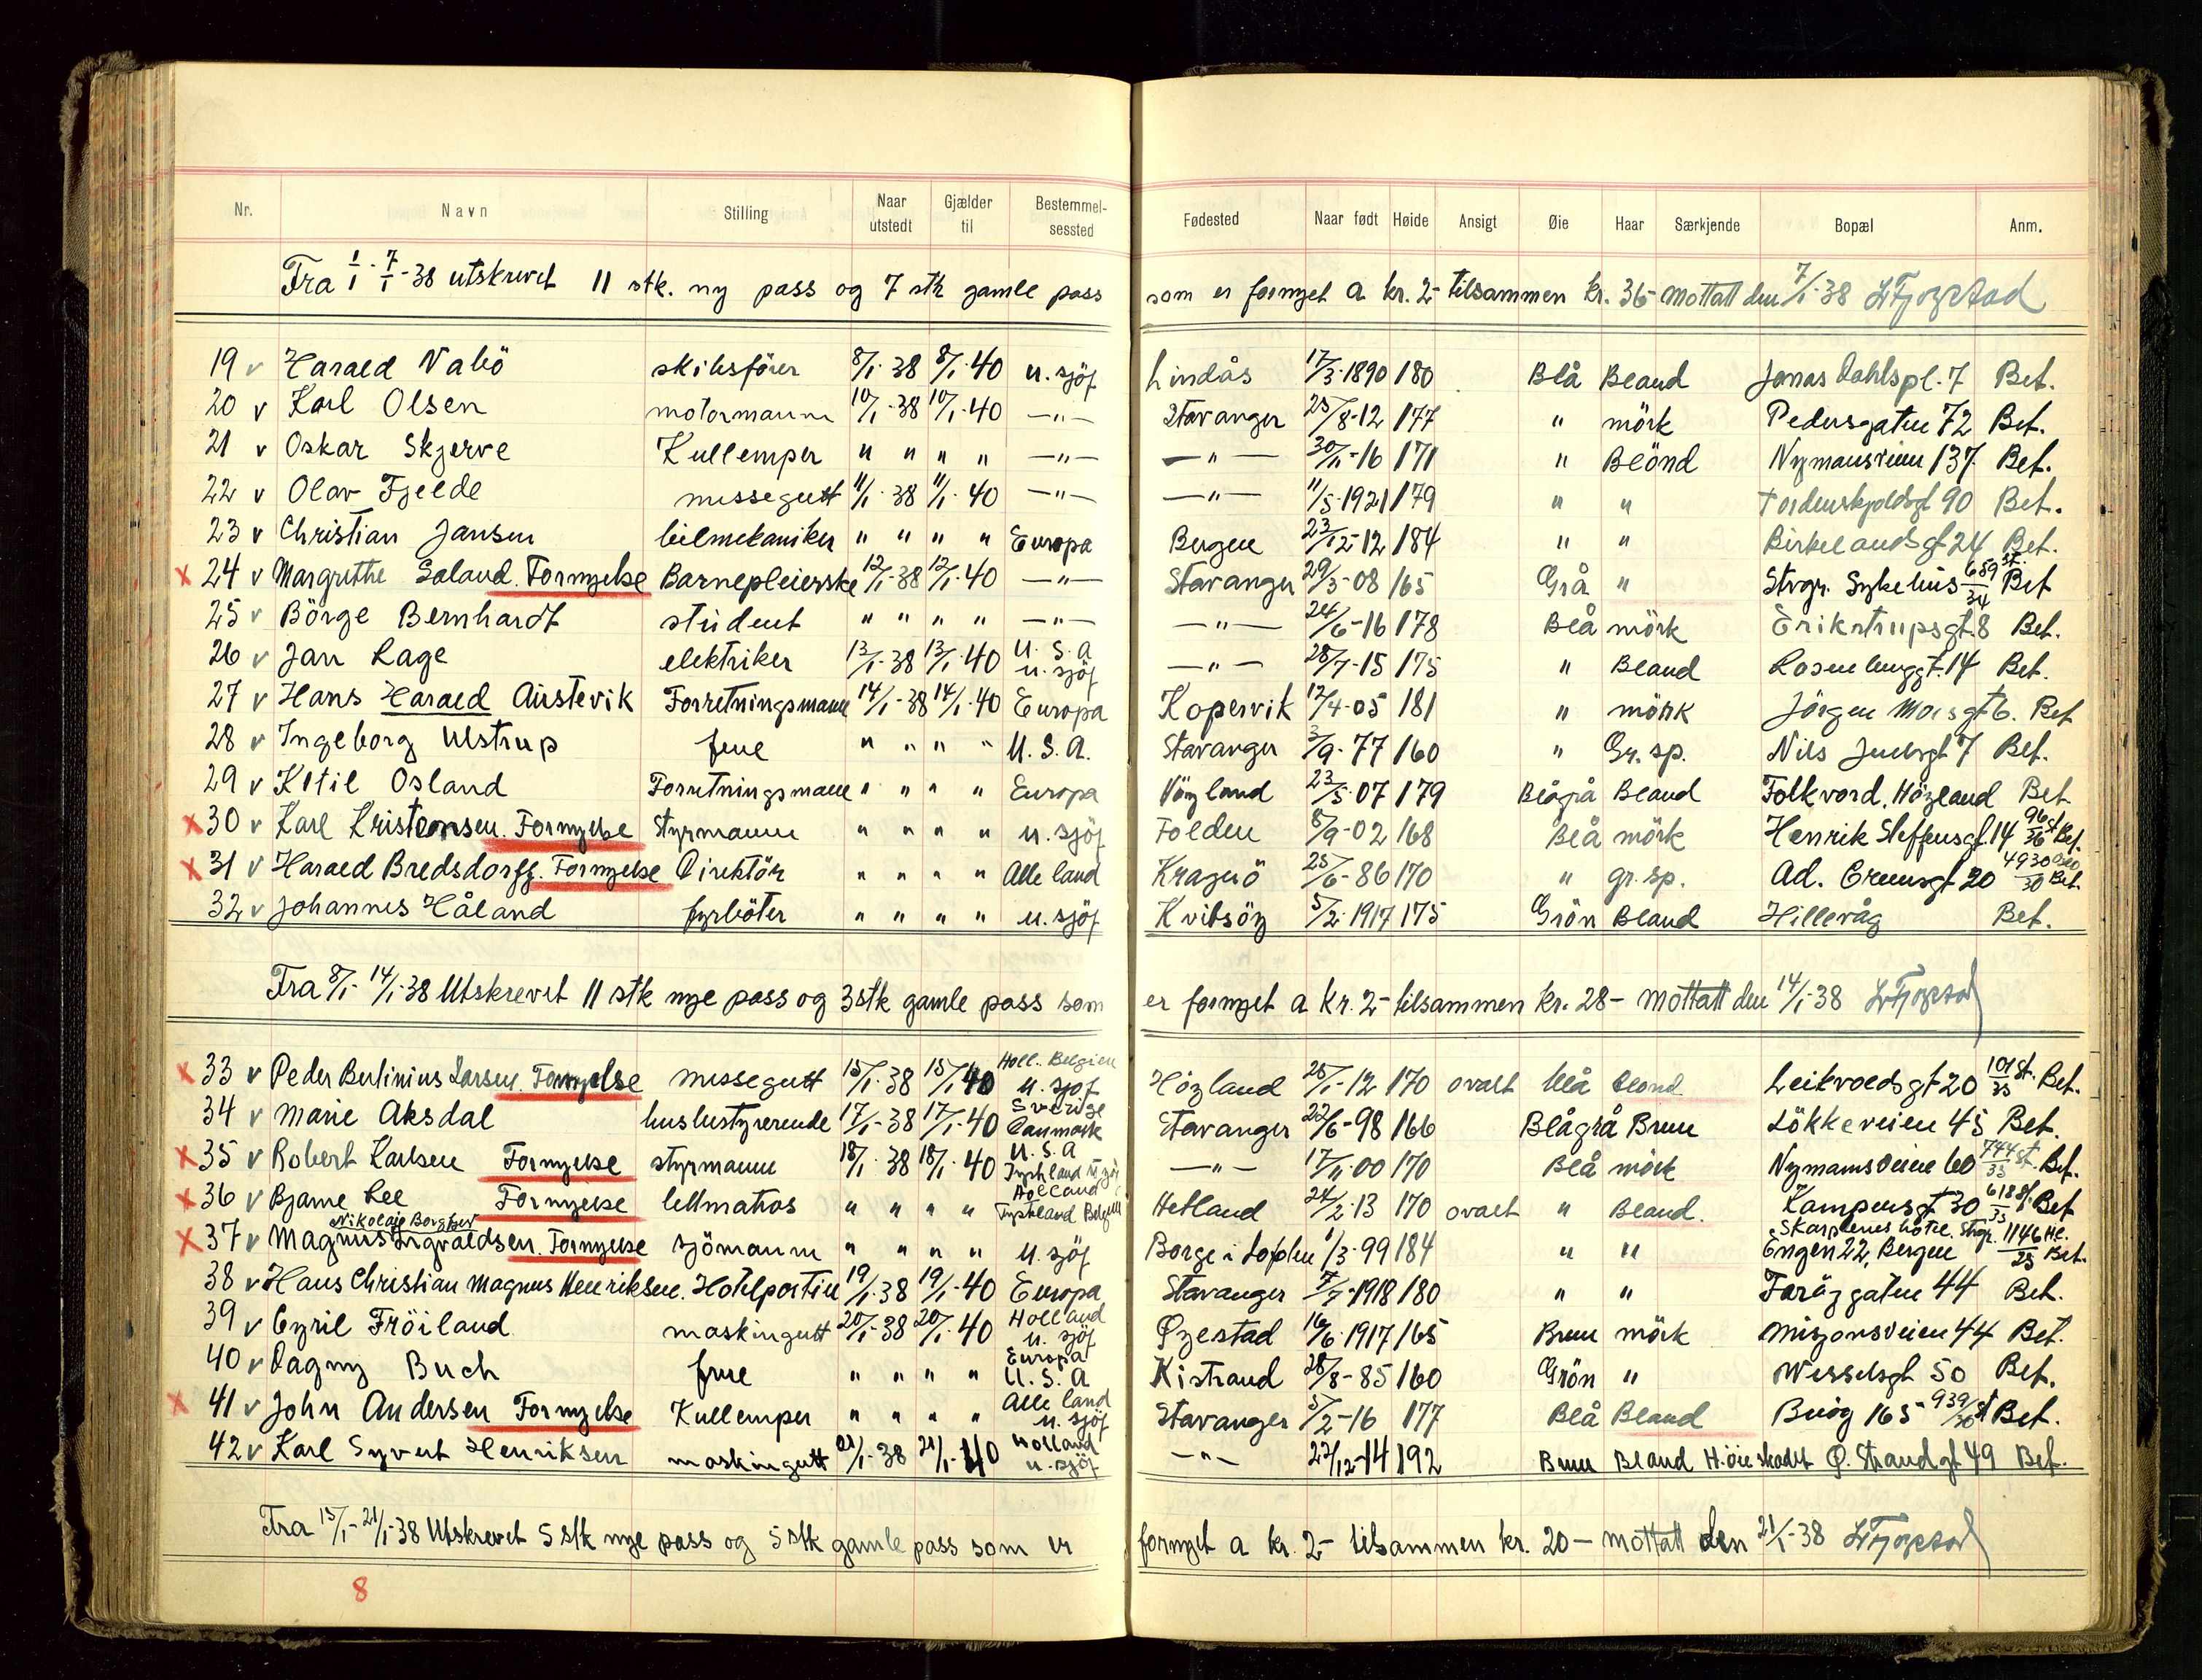 Nr. Navn Stilling Naar utstedt Gjælder til Bestemmelsessted Fødested Naar født Høide Ansigt Øie Haar Særkjende Bopæl Anm.
Fra 1/1 - 7/1-38 utskrevet 11 stk. ny pass og 7 stk gamle pass som er fornyet a kr. 2- tilsammen kr. 36- Mottatt den 7/1-38
19 v Harald Nabö skibsförer 8/1-38 8/1-40 u. sjöf Lindås 17/3-1890 180 Blå Bland Jonas Dahlspl. 7 Bet.
20 v Karl Olsen motormann 10/1-38 10/1-40 —"— Stavanger 25/8-12 177 " mörk Pedersgaten 72 Bet.
21 v Oskar Skjerve Kullemper " " " " —"— —"— 30/11-16 171 " Blönd Nymansveien 137 Bet.
22 v Olav Fjelde messegutt 11/1-38 11/1-40 —"— —"— 11/5-1921 179 " " Tordenskjoldsgt 90 Bet.
23 v Christian Jansen bilmekaniker " " " " Europa Bergen 23/12-12 184 " " Birkelandsgt 24 Bet.
x 24 v Margrethe Goland. Fornyelse Barnepleierske 12/1-38 12/1-40 —"— Stavanger 29/3-08 165 Grå " Stvgr. Sykehus 659 st./34 Bet
25 v Börge Bernhardt student " " " " —"— —"— 24/6-16 178 Blå mörk Erikstrupsgt. 8 Bet.
26 v Jan Lage elektriker 13/1-38 13/1-40 U.S.A u. sjöf —"— 28/7-15 175 " Bland Rosenberggt. 14 Bet.
27 v Hans Harald Austevik Forretningsmann 14/1-38 14/1-40 Europa Kopervik 12/4-05 181 " mörk Jörgen Moesgt 6. Bet
28 v Ingeborg Ulstrup frue " " " " U.S.A. Stavanger 3/9-77 160 " Gr. sp. Nils Juelsgt 7 Bet.
29 v Ketil Osland Forretningsmann " " " " Europa Höyland 23/5-07 179 Blågrå Bland Folkvord, Höyland Bet.
x 30 v Karl Kristensen. Fornyelse Styrmann " " " " u. sjöf Folden 8/9-02 168 Blå mörk Henrik Steffensgt. 14 96 st/36 Bet.
x 31 v Harald Bredsdorff. Fornyelse Direktör " " " " Alle land Kragerö 25/6-86 170 " gr. sp. Ad. Bruunsgt 20 4930 Oslo/30 Bet.
32 v Johannes Håland fyrböter " " " " u. sjöf Kvitsöy 5/2-1917 175 Grön Bland Hillevåg Bet.
Fra 8/1-14/1-38 Utskrevet 11 stk nye pass og 3 stk gamle pass som er fornyet a kr. 2- tilsammen kr. 28- Mottatt den 14/1-38
x 33 v Peder Berlinius Larsen. Fornyelse messegutt 15/1-38 15/1-40 Holl. Belgien u. sjöf Höyland 25/1-12 170 ovalt blå blond Leikvoldsgt 20 101 st./35 Bet.
34 v Marie Aksdal husbestyrerende 17/1-38 17/1-40 Sverige Danmark Stavanger 22/6-98 166 Blågrå Brun Lökkeveien 45 Bet.
x 35 v Robert Karlsen Fornyelse styrmann 18/1-38 18/1-40 U.S.A Tyskland u. sjö —"— 17/11-00 170 Blå mörk Nymansveien 60 744 st./35 Bet.
x 36 v Bjarne Lee Fornyelse lettmatros " " " " Holland Tyskland Belgien Hetland 24/2-13 170 ovalt " Bland. Kampensgt 30 618 st./35 Bet
x 37 v Magnus Nikolaie Borghev Sigvaldsen. Fornyelse sjömann " " " " u. sjöf Borge i Lofoten 1/3-99 184 " " Skarplenes hotel. Stvgr. Engen 22, Bergen 1146 He./25 Bet.
38 v Hans Christian Magnus Henriksen. Hotelportier 19/1-38 19/1-40 Europa Stavanger 7/7-1918 180 " " Faröygaten 44 Bet.
39 v Cyril Fröiland maskingutt 20/1-38 20/1-40 Holland u. sjöf Øyestad 16/6-1917 165 Brun mörk Misjonsveien 44 Bet.
40 v Dagny Buch frue " " " " Europa U.S.A Kistrand 28/8-85 160 Grön " Wesselsgt 50 Bet.
x 41 v John Andersen Fornyelse Kullemper " " " " Alle land u. sjöf Stavanger 5/2-16 177 Blå Bland Buöy 165 939/36 st Bet.
42 v Karl Syvert Henriksen maskingutt 21/1-38 21/1-40 Holland u. sjöf —"— 27/12-14 192 Brun Bland H. öie skadet Ø. Strandgt 49 Bet.
Fra 15/1-21/1-38 Utskrevet 5 stk nye pass og 5 stk gamle pass som er fornyet a kr. 2- tilsammen kr. 20- mottatt den 21/1-38
8